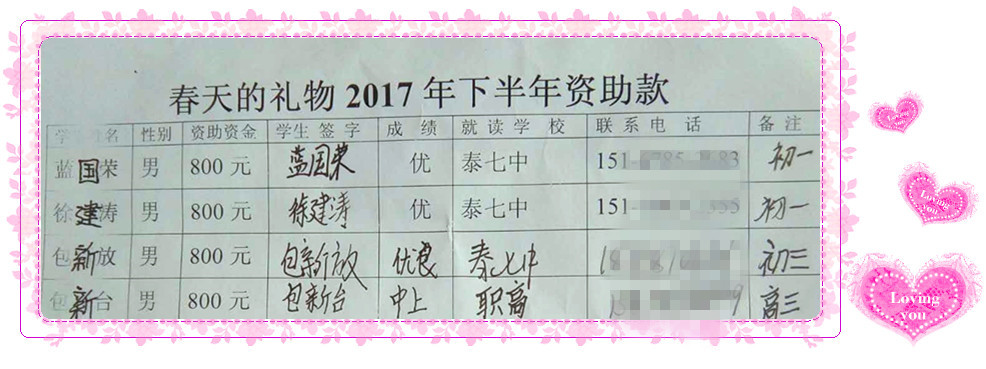 春天的礼物 2017 年下半年资助款
学 名 性别 资助资金 学生 签 字 成 绩 就 读 学 校 联 系 电 话 备 注
蓝国荣 男 800 元 蓝国荣 优 泰七中 151 83 初一
徐建涛 男 800 元 徐建涛 优 泰七中 151 初一
包新放 男 800 元 包新放 优良 泰七中 初三
包新台 男 800 元 包新台 中上 职高 高三
Loving you
Loving you
Loving you